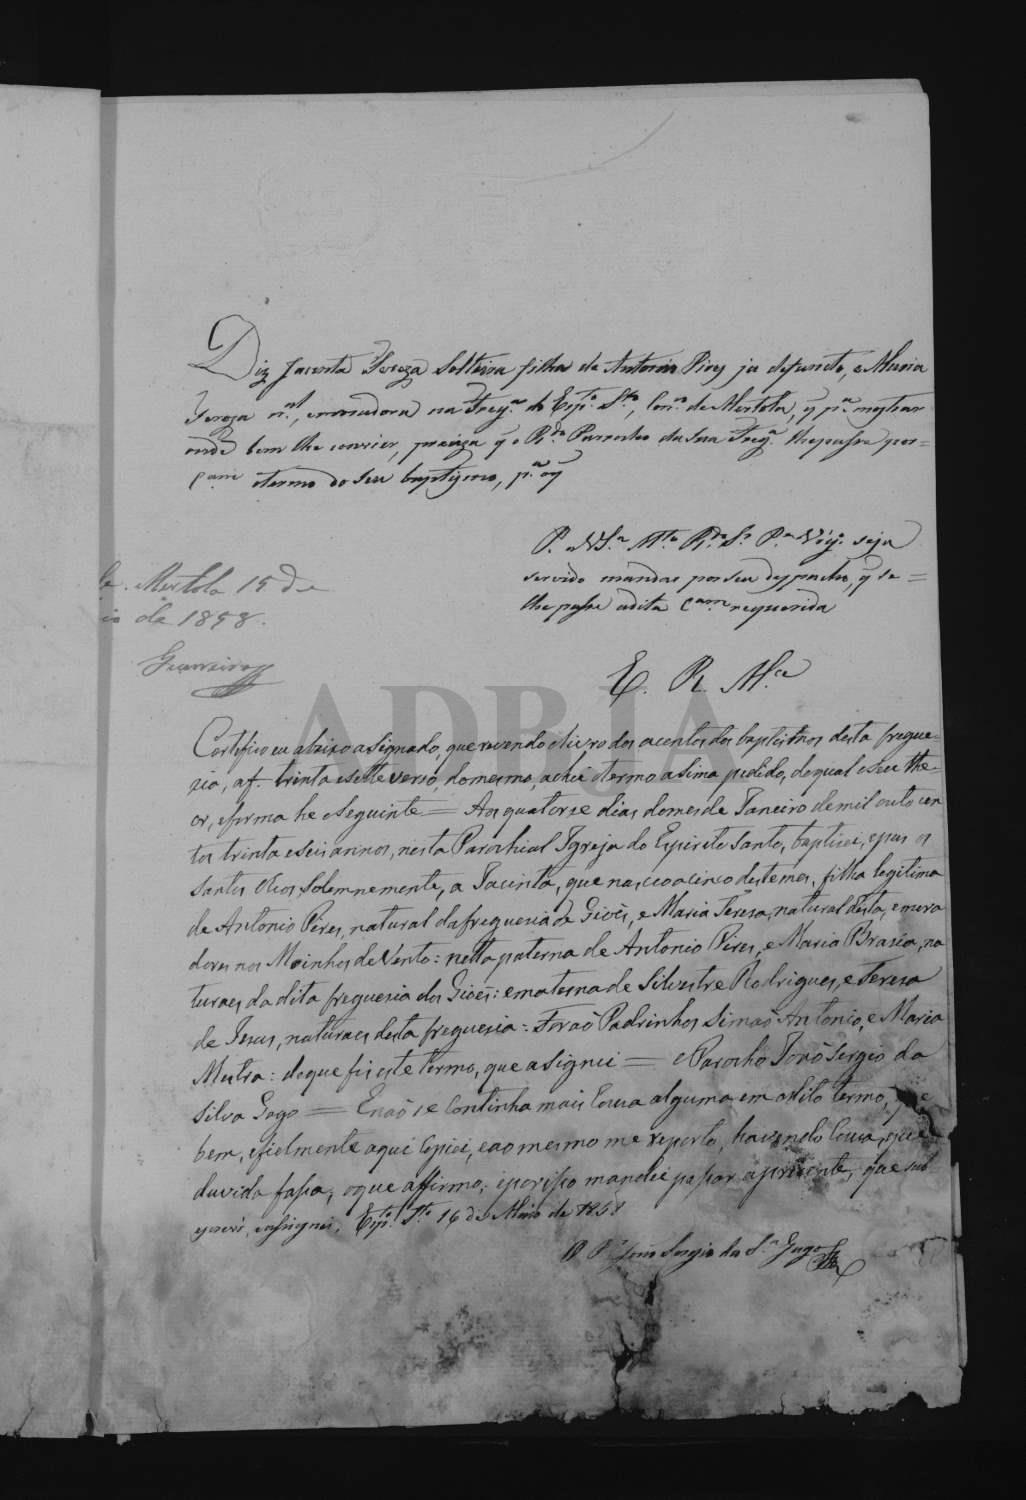 Diz Jacinta Tereza Solteira filha de Antonio Pires ja defuncto, e Maria
Tereza n.al, e moradora na Freg.a do Esp.o S.to, Con.o de Mertola, q p.a mostrar
onde bem lhe convier, precisa q o R.do Parocho da sua Freg.a lhe passe por=
Cam o termo do seu baptismo, p.a o q
P. a V S.a M.to R.do S.r P.e Vig.o seja
servido mandar por seu despacho, q se=
lhe passe a dita C.am requerida
E. R. M.ce
Mertola 15 de
de 1858.
Guerreiro
ADBJA
Certifico eu abaixo asignado, que revendo o livro dos acentos dos baptismos desta fregue=
zia, af. trinta e sette verso, do mesmo, achei o termo asima pedido, do qual o seu the=
or, e forma he o seguinte = Aos quatorse dias do mes de Janeiro de mil outo cen
tos trinta e seis annos, nesta Parochial Igreja do Espirito Santo, baptisei, e pus os
Santos Oleos solemnemente, a Jacinta, que nasceo a cinco deste mes, filha legitima
de Antonio Pires, natural da freguesia de Giões, e Maria Teresa, natural desta, e mora
dores nos Moinhos de Vento: netta paterna de Antonio Pires, e Maria Brasia, na
turaes da dita freguesia dos Giões: e materna de Silvestre Rodrigues, e Teresa
de Jesus, naturaes desta freguesia: Foraõ Padrinhos Simaõ Antonio, e Maria
Mestra: do que fis este termo, que asignei = o Parocho Joaõ Sergio da
Silva Gago = E naõ se continha mais cousa alguma em o dito termo, que
bem, e fielmente aqui copiei, e ao mesmo me reporto, havendo cousa, que
duvida fassa; o que affirmo, e por isso mandei passar a presente, que sub
screvi, e assignei. Esp.o S.to 16 de Maio de 1858
O P.e João Sergio da S.a Gago